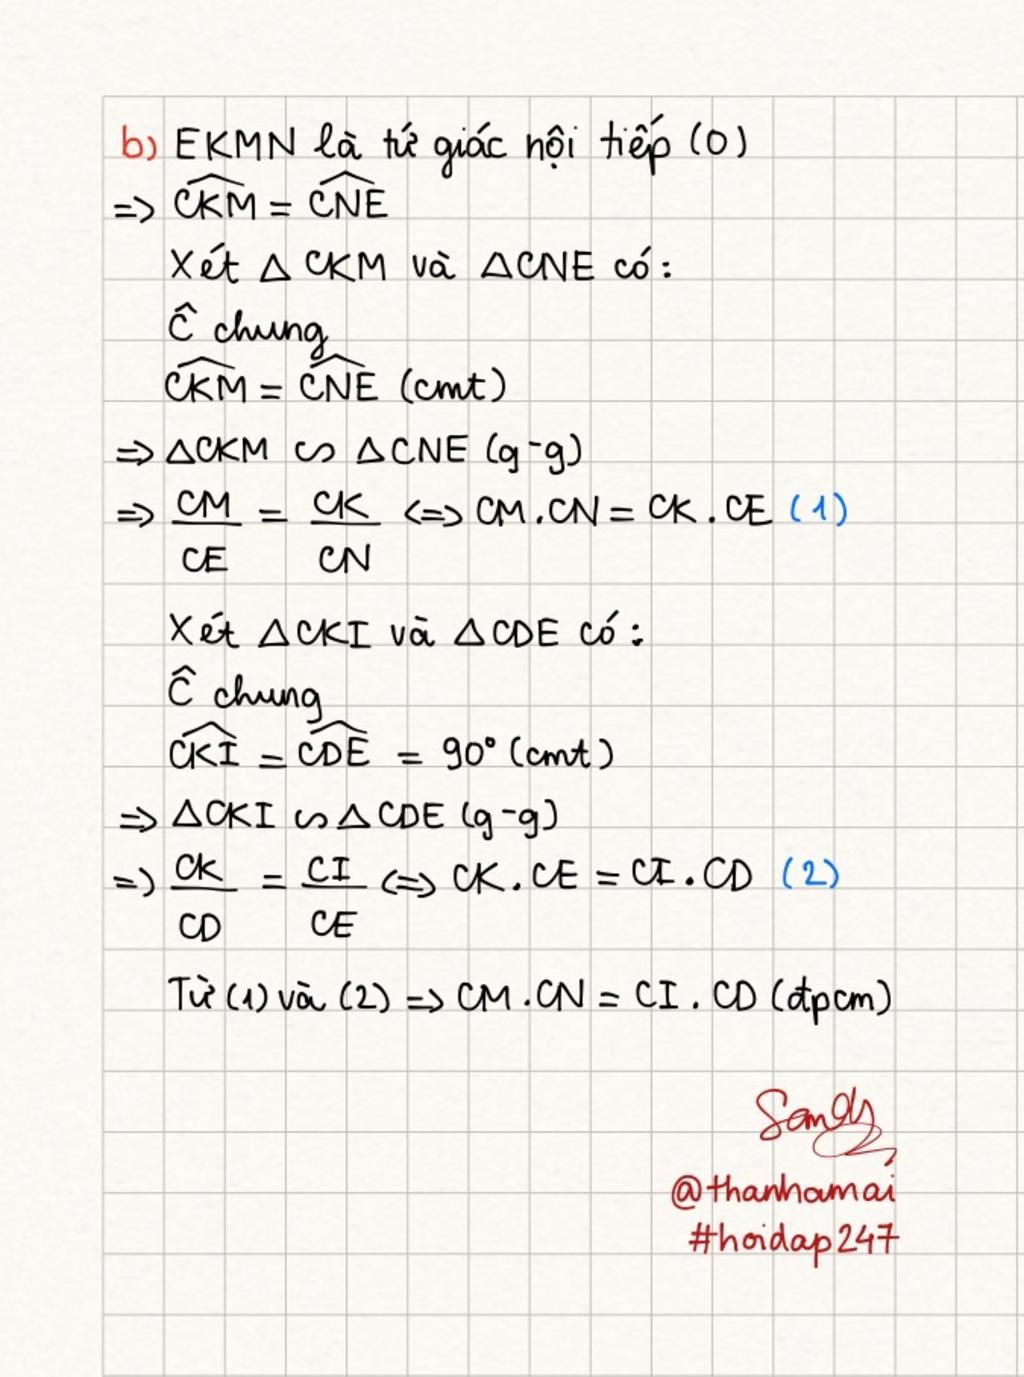 b) EKMN là tứ giác nội tiếp (O)
=> \widehat{CKM} = \widehat{CNE}
Xét △ CKM và △CNE có:
Ĉ chung
\widehat{CKM} = \widehat{CNE} (cmt)
=> △CKM ∽ △CNE (g-g)
=> CM/CE = CK/CN <=> CM.CN = CK.CE (1)
Xét △CKI và △CDE có:
Ĉ chung
\widehat{CKI} = \widehat{CDE} = 90° (cmt)
=> △CKI ∽ △CDE (g-g)
=> CK/CD = CI/CE <=> CK.CE = CI.CD (2)
Từ (1) và (2) => CM.CN = CI.CD (đpcm)
Sandy
@thanhamai
#hoidap247